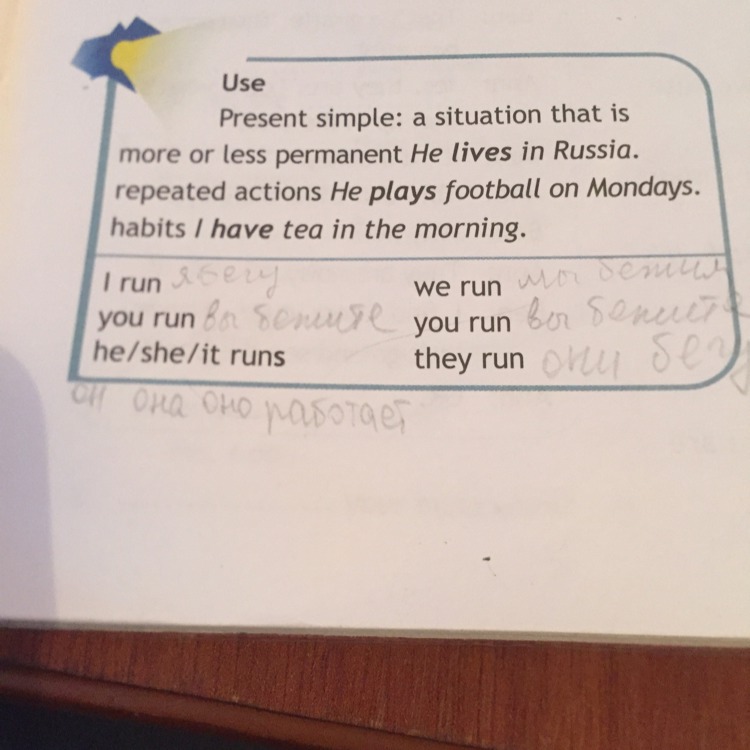 Use
Present simple: a situation that is
more or less permanent He lives in Russia.
repeated actions He plays football on Mondays.
habits I have tea in the morning.
I run я бегу we run мы бежим
you run вы бежите you run вы бежите
he/she/it runs they run они бегу
он она оно работает